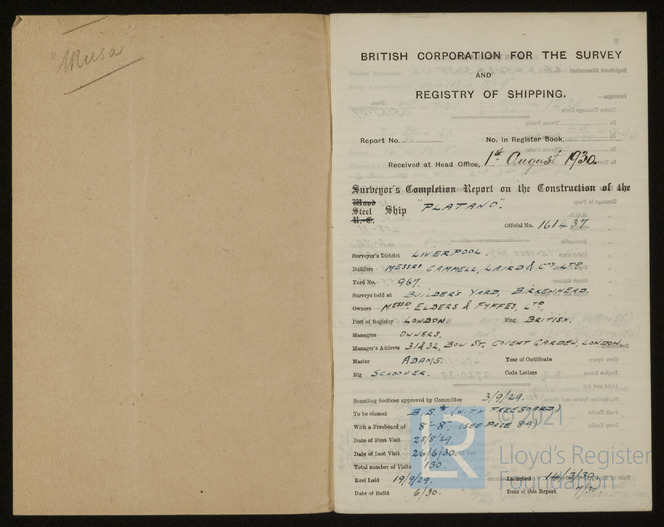 "Musa
BRITISH CORPORATION FOR THE SURVEY
AND
REGISTRY OF SHIPPING.
Report No.
No. in Register Book,
Received at Head Office, 1st August 1930
Surveyor's Completion Report on the Construction of the
Wood
Steel Ship "PLATANO".
R.-C.
Official No. 161437.
Surveyor's District LIVERPOOL.
Builders MESSRS CAMMELL, LAIRD & Coy LTD.
Yard No. 967.
Surveys held at BUILDER'S YARD, BIRKENHEAD.
Owners MESSRS ELDERS & FYFFES, LTD
Port of Registry LONDON. Flag BRITISH.
Managers OWNERS.
Manager's Address 31 & 32, BOW ST. COVENT GARDEN, LONDON.
Master ADAMS. Year of Certificate
Rig SCHOONER. Code Letters
Scantling Sections approved by Committee 3/9/29.
To be classed B S * (WITH FREEBOARD)
With a Freeboard of 8'-8" (SEE PAGE 89)
Date of First Visit 28/5/29
Date of Last Visit 26/6/30.
Total number of Visits 130.
Keel Laid 19/9/29. Launched 14/3/30.
Date of Build 6/30. Date of this Report /30.
© 2021
LR
Lloyd's Register
Foundation